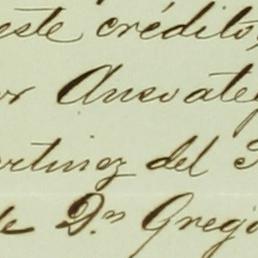 este crédito,
or Ansoateg
artinez del
de D.n Grego